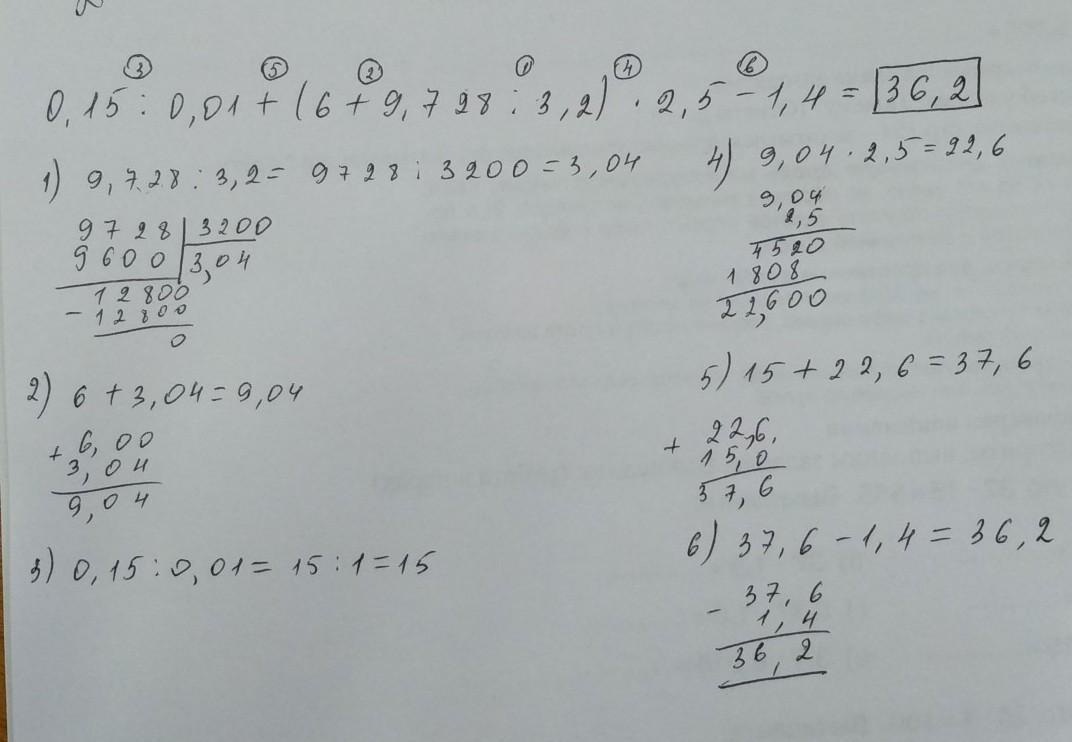 ③ ⑤ ② ① ④ ⑥
0,15 : 0,01 + (6 + 9,728 : 3,2) · 2,5 - 1,4 = 36,2
1) 9,728 : 3,2 = 9728 : 3200 = 3,04
9728 3200
9600 3,04
12800
- 12800
0
2) 6 + 3,04 = 9,04
+ 6,00
3,04
9,04
3) 0,15 : 0,01 = 15 : 1 = 15
4) 9,04 · 2,5 = 22,6
9,04
2,5
4520
1808
22,600
5) 15 + 22,6 = 37,6
+ 22,6
15,0
37,6
6) 37,6 - 1,4 = 36,2
- 37,6
1,4
36,2